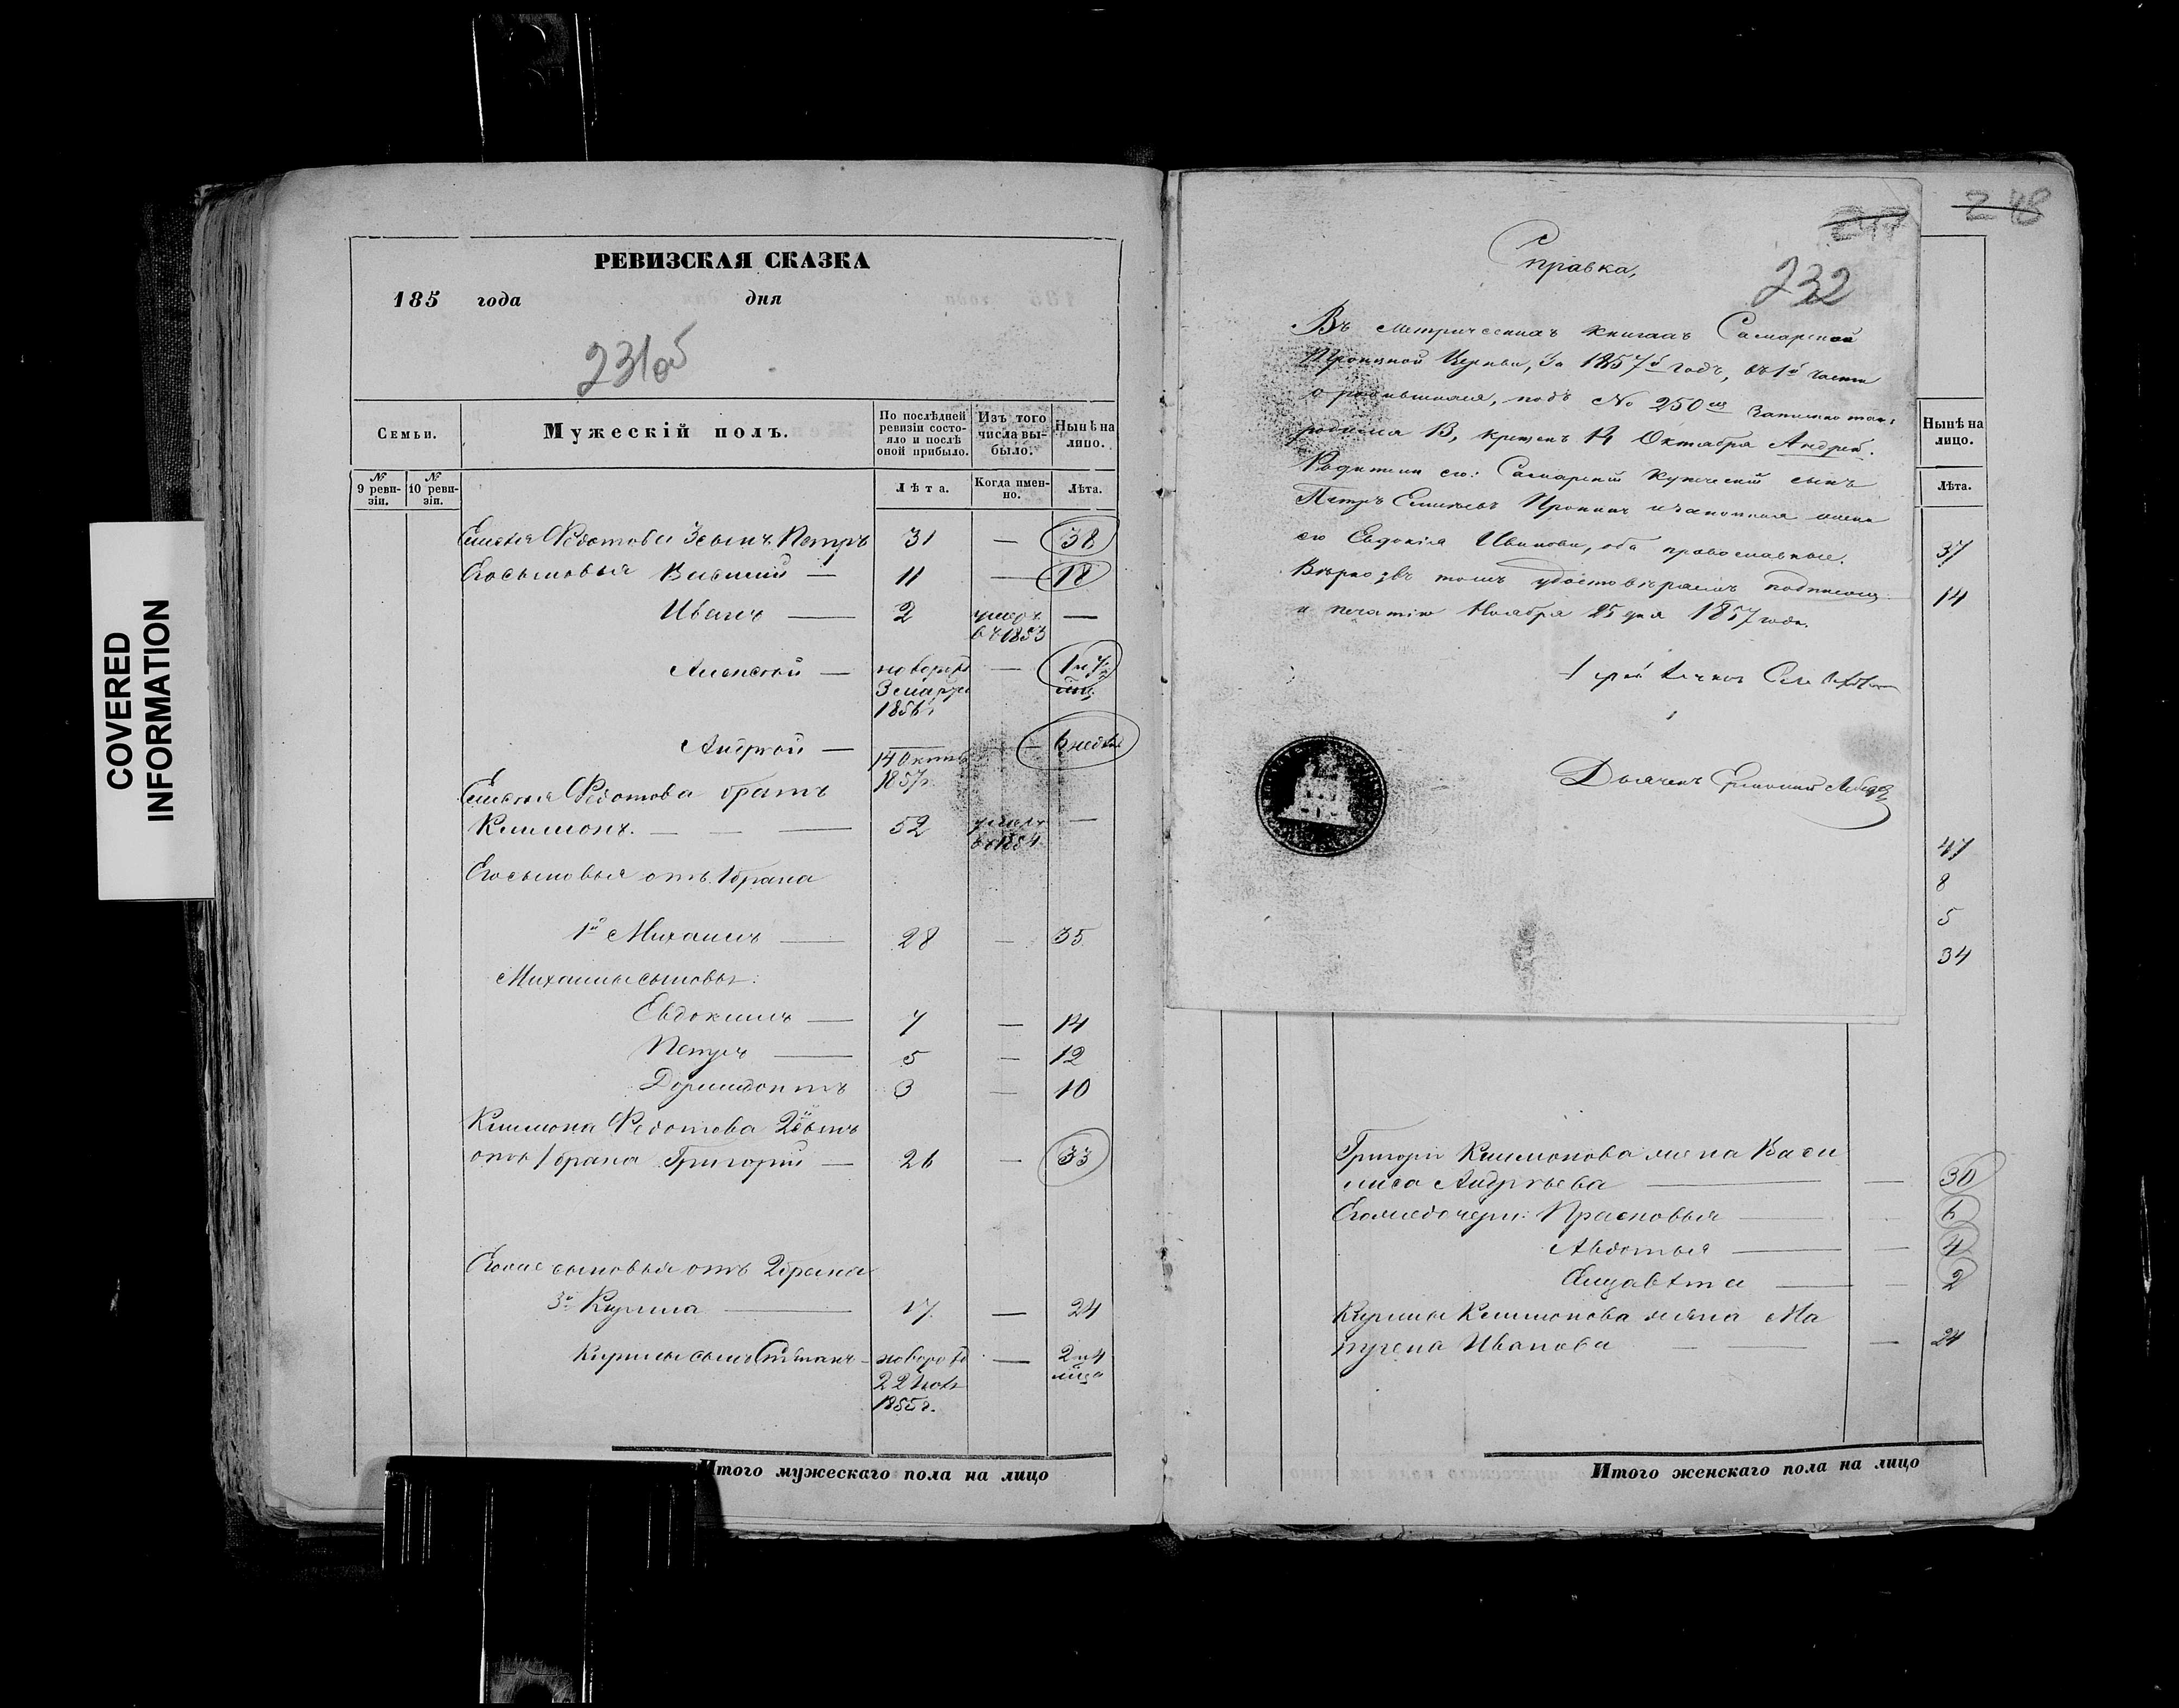 COVERED
INFORMATION
РЕВИЗСКАЯ СКАЗКА
185 года дня
231об
Семьи.
Мужескій полъ.
По послѣдней ревизіи состояло и послѣ оной прибыло.
Изъ того числа выбыло.
Нынѣ на лицо.
№ 9 ревизіи.
№ 10 ревизіи.
Лѣта.
Когда именно.
Лѣта.
Емельяна Федотова 3 сынъ Петръ 31 — 38
Его сыновья Василий — 11 — 18
Иванъ — 2 умеръ въ 1853 —
Алексѣй — новорожд 3 марта 1856 г. — 1 и 7/2
Андрей — — 14 Октяб 1857 г. — 6 недѣль
Емельяна Федотова братъ
Климонъ — — — 52 умеръ въ 1854 —
Его сыновья отъ 1 брака
1й Михаилъ — 28 — 35
Михаилы сыновья:
Евдокимъ — 7 — 14
Петръ — 5 — 12
Дормидонтъ 3 — 10
Климона Федотова 2й сынъ
отъ 1 брака Григорий — 26 — 33
Егоже сыновья отъ 2 брака
3й Кирила — 17 — 24
Кирилы сынъ Степанъ — новорожд 22 нояб 1855 г. — 2 и 4 мѣся
248
247
232
Справка,
Въ метрическихъ книгахъ Самарской
Троицкой Церкви, за 1857й годъ, въ 1й части
о родившихся, подъ № 250мъ записано такъ:
родился 13, крещенъ 14 Октября Андрей.
Родители его: Самарскій купеческій сынъ
Петръ Емильевъ Пронинъ и законная жена
его Евдокія Иванова, оба православные.
Вѣрно въ томъ удостовѣряемъ подписомъ
и печатію Ноября 25 дня 1857 года.
Дьячекъ
Нынѣ на лицо.
Лѣта.
37
14
47
8
5
34
Григорія Климонова жена Васи
лиса Андрѣева — — 30
Егоже дочери: Прасковья — 6
Авдотья — — 4
Елизавѣта — — 2
Кирилы Климонова жена Ма
трена Иванова — — — 24
Итого мужескаго пола на лицо
Итого женскаго пола на лицо